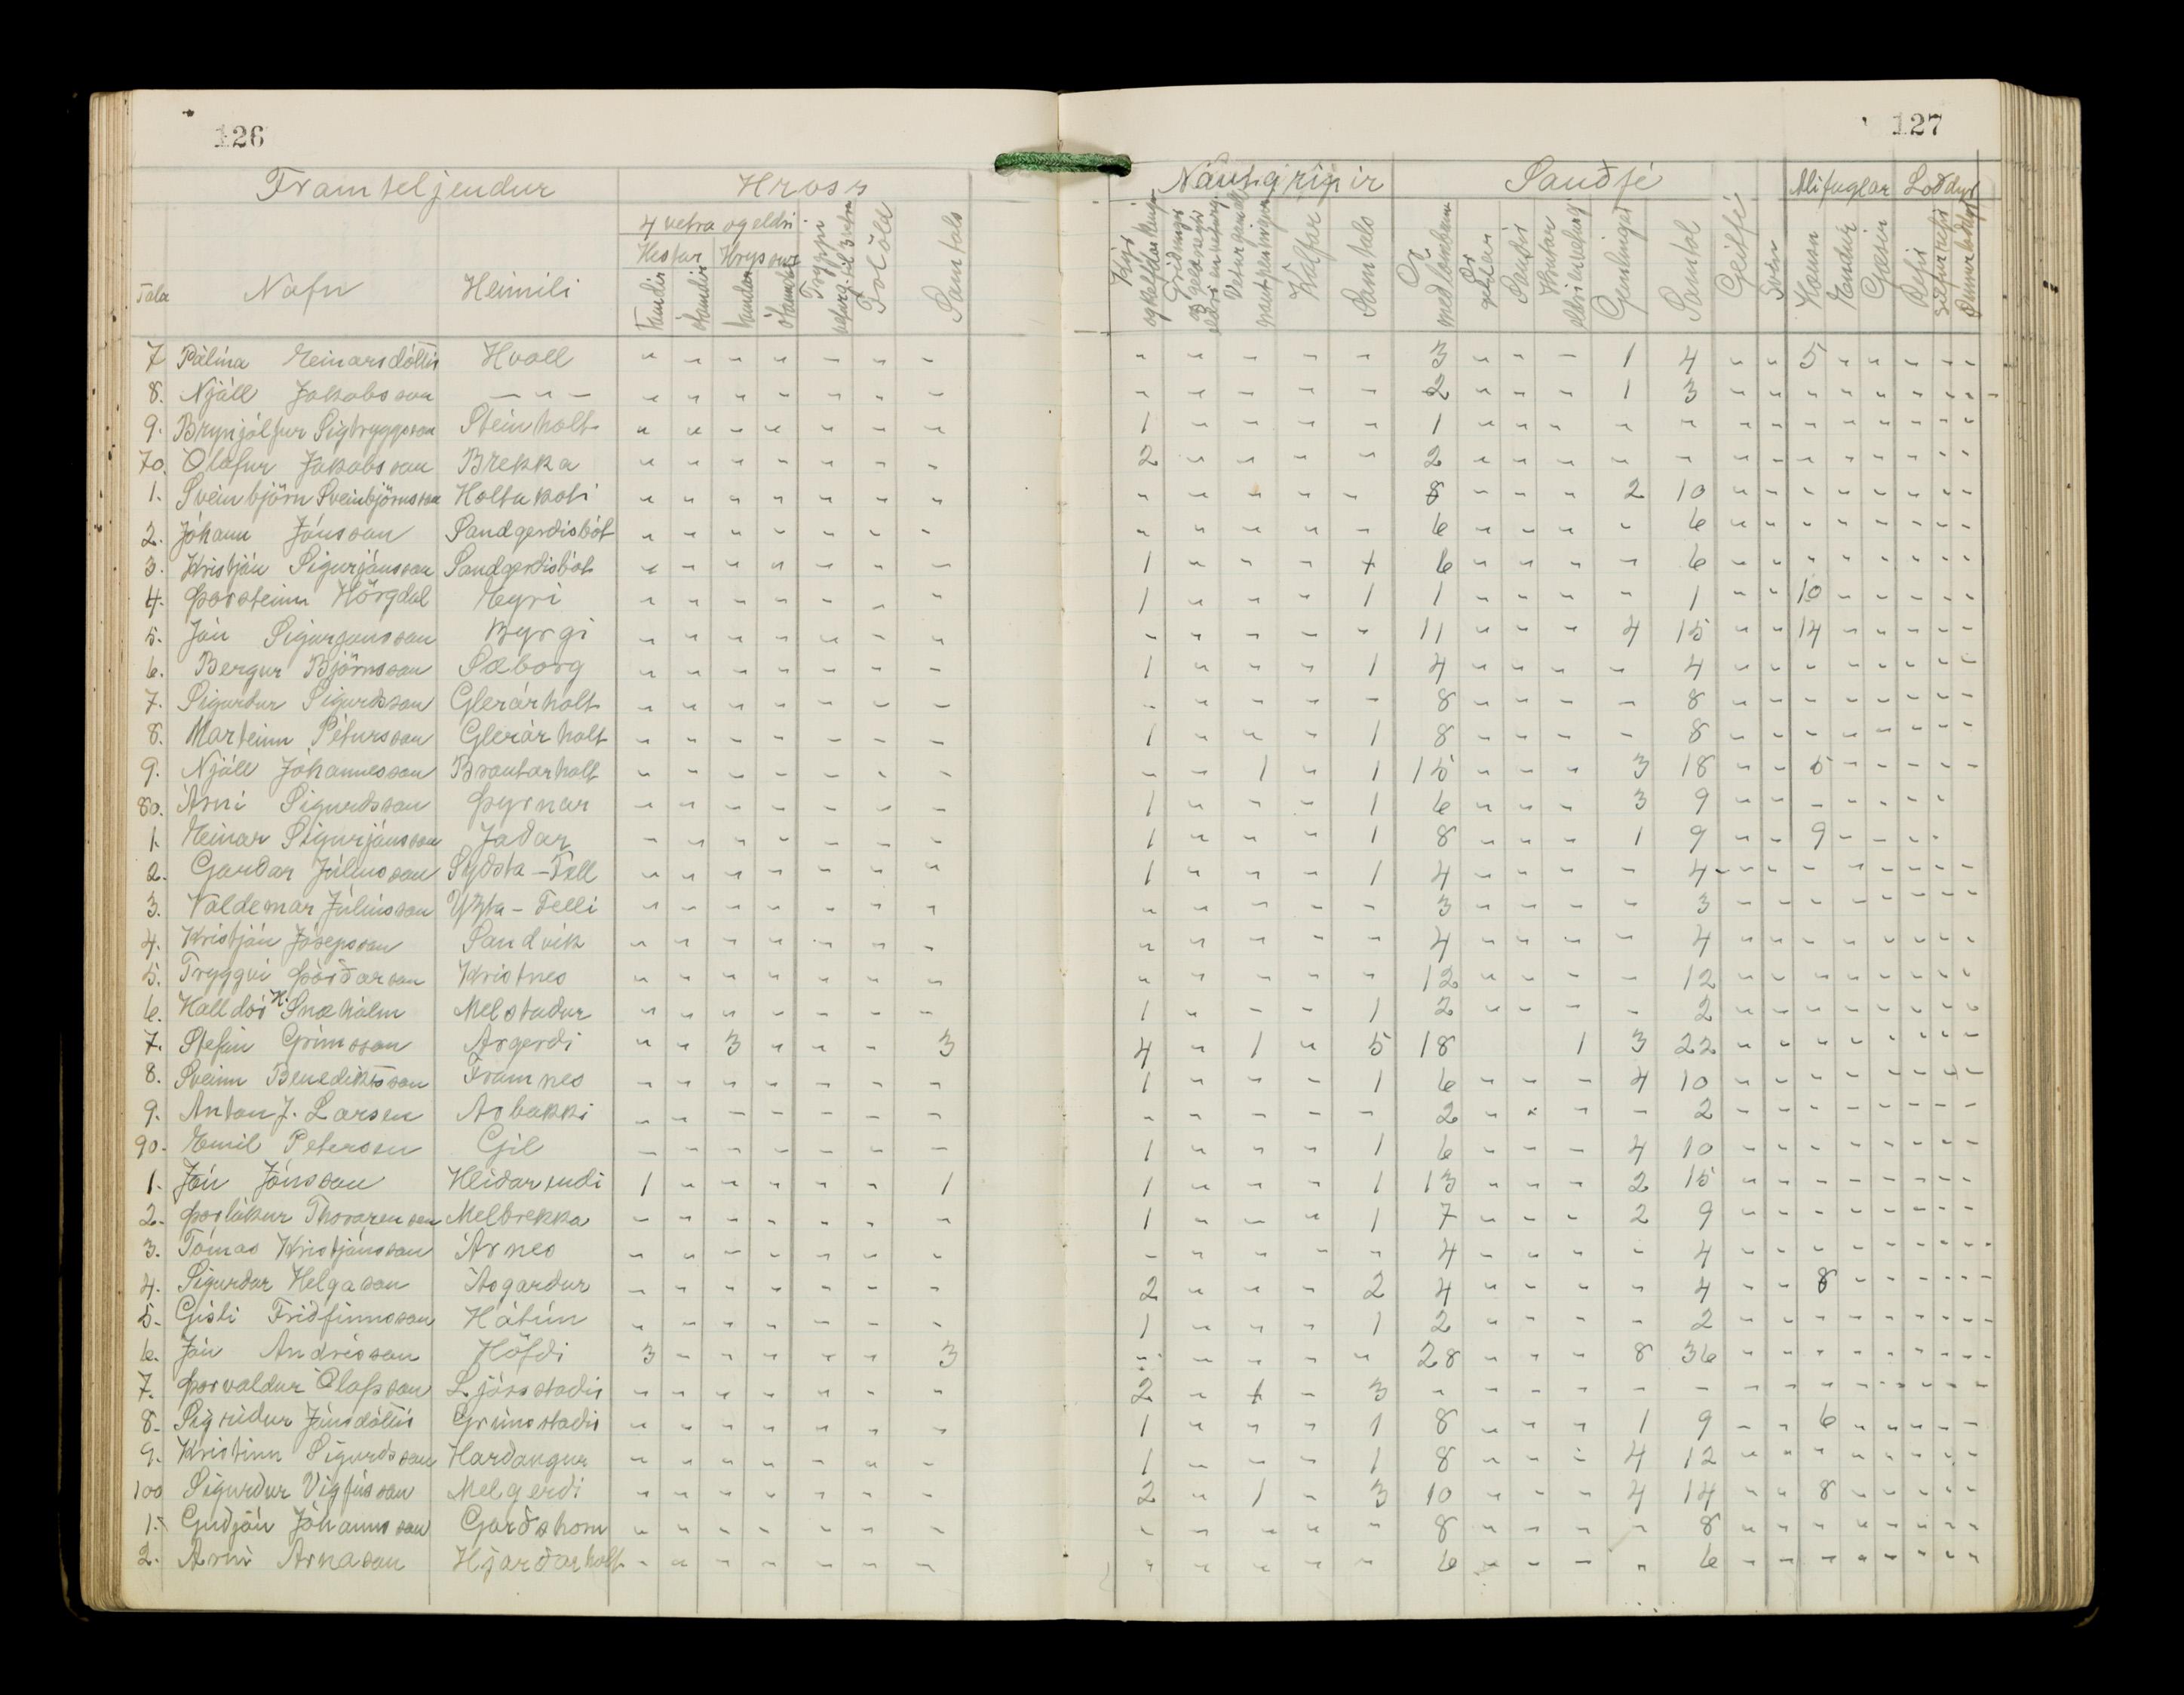 126
127
Framteljendur Hross Nautgripir Sauðfé Alifuglar Loðdýr
4 vetra og eldri
Hestar Hryssur
Tala Nafn Heimili Tamdir ótamdir tamdar ótamdar Tryppi veturg. til 3 vetra Folöld Samtals Kýr og kelfdar kvígur Griðungar og geldneyti eldri en veturg. Veturgamall nautpeningur Kálfar Samtals Ær með lömbum Ær geldar Sauðir Hrútar eldri en veturg. Gemlingar Samtal Geitfé Svín Hænsn Endur Gæsir Refir
7 Pálína Einarsdóttir Hvoll " " " " " " " " " " " " 3 " " " 1 4 " " 5 " " " " "
8. Njáll Jakobsson — " — " " " " " " " " " " " " 2 " " " 1 3 " " " " " " " "
9. Brynjólfur Sigtryggsson Steinholt " " " " " " " 1 " " " " 1 " " " " " " " " " " " " "
70. Ólafur Jakobsson Brekka " " " " " " " 2 " " " " 2 " " " " " " " " " " " " "
1. Sveinbjörn Sveinbjörnsson Holtakoti " " " " " " " " " " " " 8 " " " 2 10 " " " " " " " "
2. Jóhann Jónsson Sandgerdisbót " " " " " " " " " " " " 6 " " " " 6 " " " " " " " "
3. Kristján Sigurjónsson Sandgerdisbót " " " " " " " 1 " " " + 6 " " " " 6 " " " " " " " "
4. Þorsteinn Hörgdal Eyri " " " " " " " 1 " " " 1 1 " " " " 1 " " 10 " " " " "
5. Jón Sigurjonsson Byrgi " " " " " " " " " " " " 11 " " " 4 15 " " 14 " " " " "
6. Bergur Björnsson Sæborg " " " " " " " 1 " " " 1 4 " " " " 4 " " " " " " " "
7. Sigurdur Sigurdsson Glerárholt " " " " " " " " " " " " 8 " " " " 8 " " " " " " " "
8. Marteinn Pétursson Glerárholt " " " " " " " 1 " " " 1 8 " " " " 8 " " " " " " " "
9. Njáll Jóhannesson Brautarholt " " " " " " " " " 1 " 1 15 " " " 3 18 " " 5 " " " " "
80. Árni Sigurdsson Þyrnar " " " " " " " 1 " " " 1 6 " " " 3 9 " " " " " " "
1. Einar Sigurjónsson Jaðar " " " " " " " 1 " " " 1 8 " " " 1 9 " " 9 " " " "
2. Garðar Júlíusson Syðsta-Fell " " " " " " " 1 " " " 1 4 " " " " 4 " " " " " " " "
3. Valdemar Júlíusson Yzta-Felli " " " " " " " " " " " " 3 " " " " 3 " " " " " " " "
4. Kristján Jósepsson Sandvík " " " " " " " " " " " " 4 " " " " 4 " " " " " " " "
5. Tryggvi Þórðarson Kristnes " " " " " " " " " " " " 12 " " " " 12 " " " " " " " "
6. Halldór H. Snæhólm Melstadur " " " " " " " 1 " " " 1 2 " " " " 2 " " " " " " " "
7. Stefán Grímsson Árgerdi " " 3 " " " 3 4 " 1 " 5 18 1 3 22 " " " " " " " "
8. Sveinn Benediktsson Framnes " " " " " " " 1 " " " 1 6 " " " 4 10 " " " " " " " "
9. Anton J. Larsen Árbakki " " " " " " " " " " " " 2 " " " " 2 " " " " " " " "
90. Emil Petersen Gil " " " " " " " 1 " " " 1 6 " " " 4 10 " " " " " " " "
1. Jón Jónsson Hlídarendi 1 " " " " " 1 1 " " " 1 13 " " " 2 15 " " " " " " " "
2. Þorlákur Thorarensen Melbrekka " " " " " " " 1 " " " 1 7 " " " 2 9 " " " " " " " "
3. Tómas Kristjánsson Árnes " " " " " " " " " " " " 4 " " " " 4 " " " " " " " "
4. Sigurdur Helgason Ásgardur " " " " " " " 2 " " " 2 4 " " " " 4 " " 8 " " " " "
5. Gísli Friðfinnsson Hátún " " " " " " " 1 " " " 1 2 " " " " 2 " " " " " " " "
6. Jón Andrésson Höfdi 3 " " " " " 3 " " " " " 28 " " " 8 36 " " " " " " " "
7. Þorvaldur Ólafsson Ljósstadir " " " " " " " 2 " 1 " 3 " " " " " " " " " " " " " "
8. Sigridur Jónsdóttir Grímsstadir " " " " " " " 1 " " " 1 8 " " " 1 9 " " 6 " " " " "
9. Kristinn Sigurdsson Hardangur " " " " " " " 1 " " " 1 8 " " " 4 12 " " " " " " " "
100 Sigurdur Vigfússon Melgerdi " " " " " " " 2 " 1 " 3 10 " " " 4 14 " " 8 " " " " "
1. Gudjón Jóhannsson Garðshorn " " " " " " " " " " " " 8 " " " " 8 " " " " " " " "
2. Árni Árnason Hjarðarholt " " " " " " " " " " " " 6 " " " " 6 " " " " " " " "